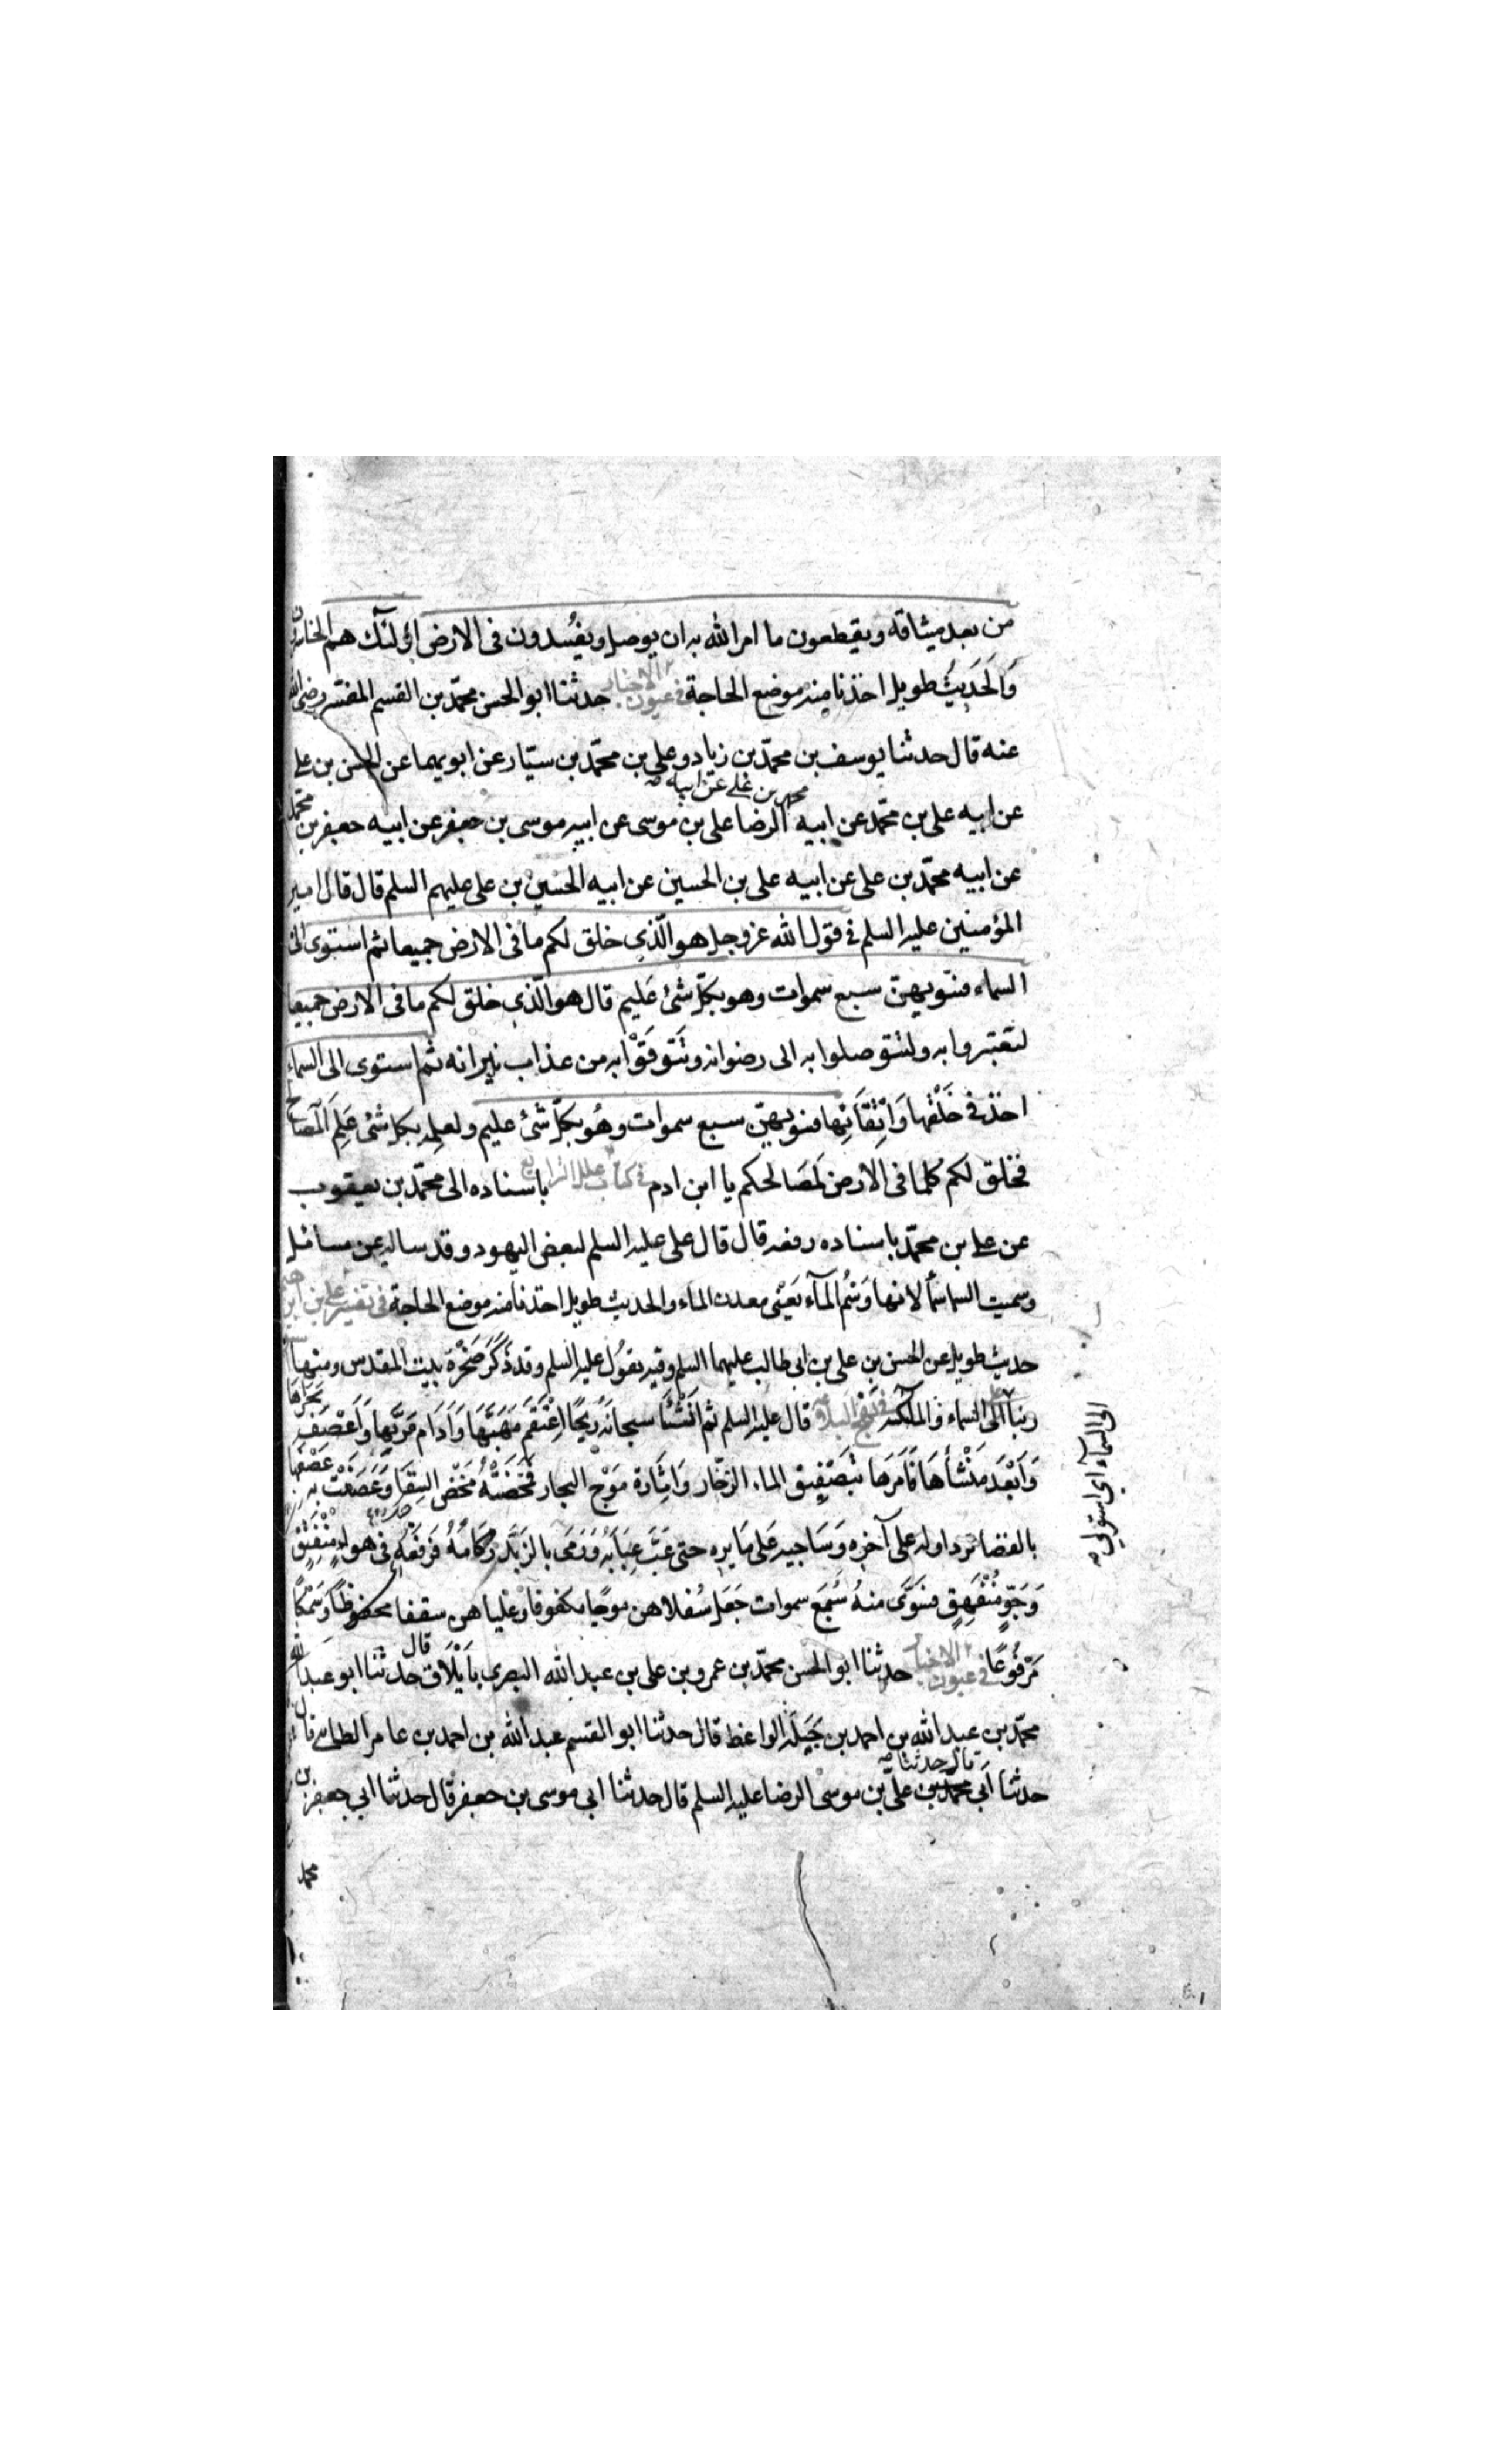 من بعد ميثاقه ويقطعون ما امر الله به ان يوصل ويفسدون فى الارض اولئك هم الخاسرون
وَالحَديثُ طويل اخذنا منه موضع الحاجة فى عيون الاخبار حدثنا ابو الحسن محمّد بن القسم المفسّر رضى الله
عنه قال حدثنا يوسف بن محمّد بن زياد وعلى بن محمّد بن سيّار عن ابويهما عن الحسن بن على
عن ابيه على بن محمّد عن ابيه محمد بن على عن ابيه الرضا على بن موسى عن ابيه موسى بن جعفر عن ابيه جعفر بن محمّد
عن ابيه محمّد بن على عن ابيه على بن الحسين عن ابيه الحسين بن على عليهم السلم قال قال امير
المؤمنين عليه السلم فى قول الله عز وجل هو الّذى خلق لكم ما فى الارض جميعا ثم استوى الى
السماء فسويهنّ سبع سموات وهو بكلّ شئ عَليم قال هو الّذى خلق لكم ما فى الارض جميعا
لتَعتبروا به ولتتوصلوا به الى رضوانه وتتَوقَوْا به من عذاب نيرانه ثم استوى الى السماء
اخذ فى خَلْقها وَاِتْقَانِها فسويهنّ سبع سموات وهُو بكلّ شئ عليم ولعلمه بكل شئ عَلِمَ المصالح
فخلق لكم كلما فى الارض لمَصَالحكم يا ابن ادم فى كتاب علل الشرايع باسناده الى محمّد بن يعقوب
عن على بن محمّد باسناده رفعه قال قال على عليه السلم لبعض اليهود وقد ساله عن مسائل
وسميت السماسمأ لانها وَسْمُ المآء يَعْنى معدن الماء والحديث طويل اخذنا منه موضع الحاجة فى تفسير على بن ابرهيم
حديث طويل عن الحسن بن على بن ابى طالب عليهما السلم وفيه يقُول عليه السلم وقد ذَكَرَ صَخْرَة بيت المقدس ومنها استوى
ربنا الى السماء والملئكة فى نهج البلاغة قال عليه السلم ثم انَشَْأَ سبحانه رِيحًا اِعْتَقَمَ مَهَبَّهَا وَاَدَام مَرَبَّهَا وَاَعْصَفَ مَجْراهَا
وَاَبْعَدَ مَنْشأهَا فَاَمَرَها بتَصْفِيق الماء الزخّار وَاِثَارة مَوْج البحار فَمَخَضَتْهُ مَخْضَ السِقَاء وَعَصَفَتْ به عَصْفَها
بالفضاء ترد اوله على آخره وَسَاجيه عَلى مَايره حتى عَبَّ عِبَابُه وَرَمَى بالزَبَد رُكَامُهُ فَرَفَعَهُ فى هواء مُنْفَتِق
وَجَوٍّ مُنْفَهِقٍ فسَوَّى منهُ سَبْعَ سموات جَعَل سُفلاهن موجًا مكفوفا وعُلياهن سقفا محفوظًا وَسَمْكًا
مَرْفُوعًا فى عيون الاخبار حدثنا ابو الحسن محمّد بن عمرو بن على بن عبد الله البصرى بايْلَاق قال حدثنا ابو عبد الله
محمّد بن عبد الله بن احمد بن جَبَلَة الواعظ قال حدثنا ابو القسم عبد الله بن احمد بن عامر الطائى قال
حدثنا ابى قال حدثنا على بن موسى الرضا عليه السلم قال حدثنا ابى موسى بن جعفر قال حدثنا ابى جعفر بن
محمد
الى السمآء اى استولى